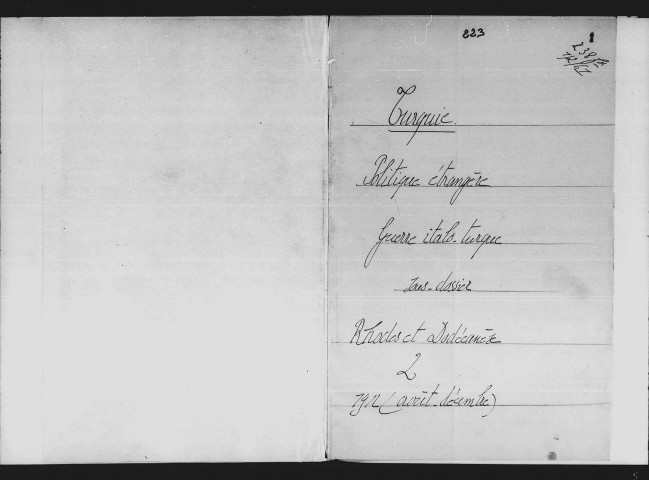 223
1
Turquie.
Politique étrangère
Guerre italo-turque
sous-dossier
Rhodes et Dodécanèse
2
1912 (août-décembre)